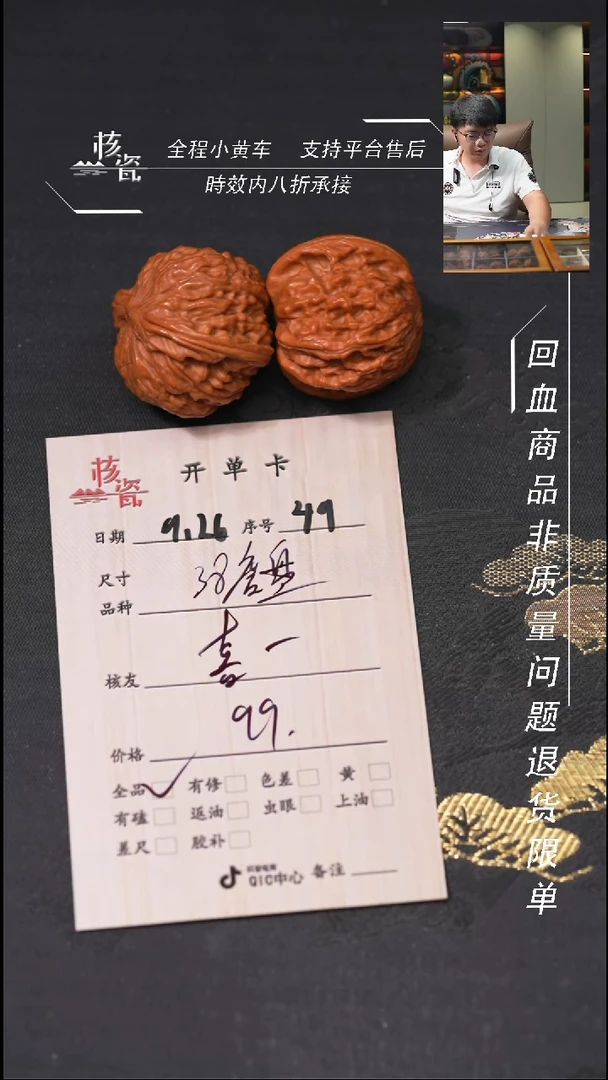 核瓷
全程小黄车 支持平台售后
時效内八折承接
回血商品非质量问题退货限单
核瓷
开单卡
日期 9.26 序号 49
尺寸
品种
核友 喜一
价格 99.
全品 有修 色差 黄
有磕 返油 虫眼 上油
差尺 胶补
QIC中心 备注